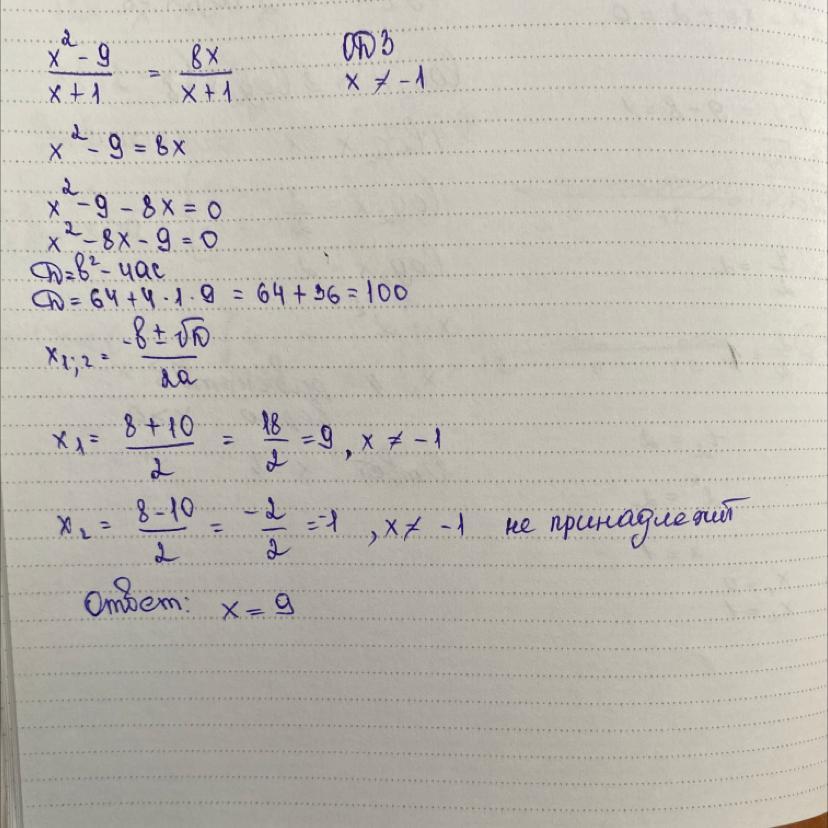 x² - 9 / x + 1 = 8x / x + 1 ОДЗ x ≠ -1
x² - 9 = 8x
x² - 9 - 8x = 0
x² - 8x - 9 = 0
D = b² - 4ac
D = 64 + 4 · 1 · 9 = 64 + 36 = 100
x₁;₂ = -b ± √D / 2a
x₁ = 8 + 10 / 2 = 18 / 2 = 9, x ≠ -1
x₂ = 8 - 10 / 2 = -2 / 2 = -1, x ≠ -1 не принадлежит
Ответ: x = 9